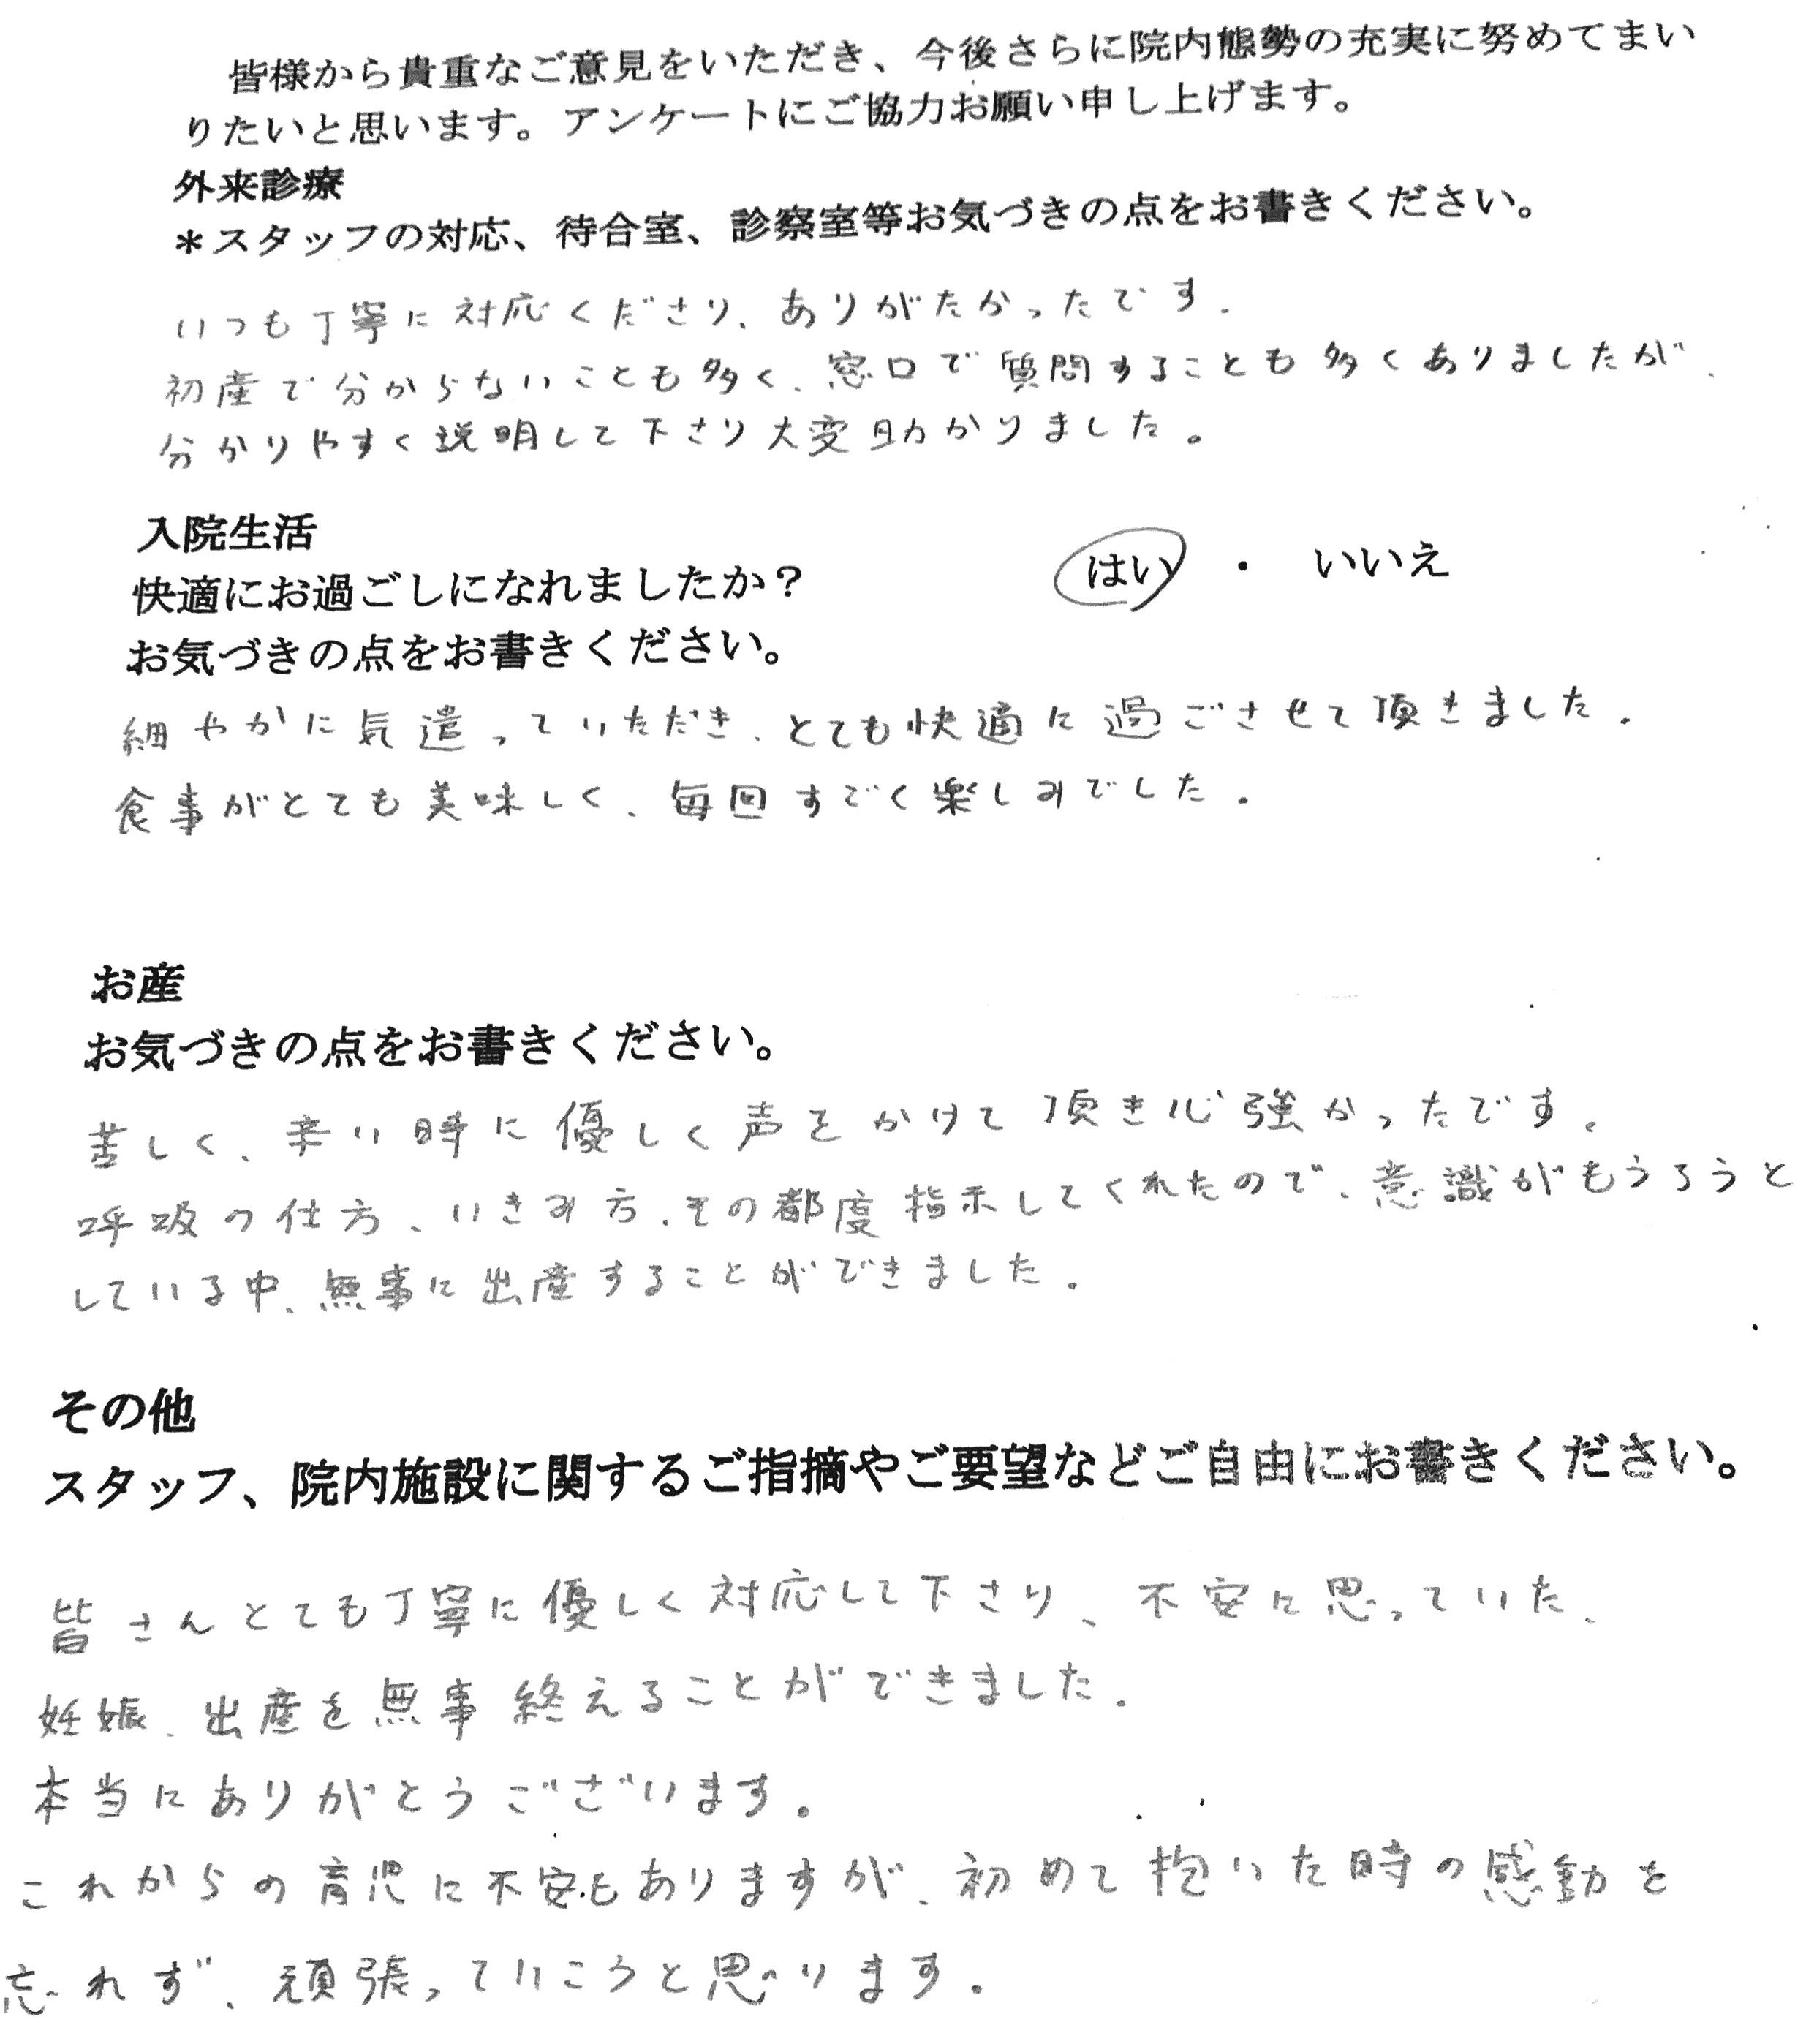 皆様から貴重なご意見をいただき、今後さらに院内態勢の充実に努めてまい
りたいと思います。アンケートにご協力お願い申し上げます。
外来診療
＊スタッフの対応、待合室、診察室等お気づきの点をお書きください。
いつも丁寧に対応くださり、ありがたかったです。
初産で分からないことも多く、窓口で質問することも多くありましたが、
分かりやすく説明して下さり大変助かりました。
入院生活
快適にお過ごしになれましたか？ はい ・ いいえ
お気づきの点をお書きください。
細やかに気遣っていただき、とても快適に過ごさせて頂きました。
食事がとても美味しく、毎回すごく楽しみでした。
お産
お気づきの点をお書きください。
苦しく、辛い時に優しく声をかけて頂き心強かったです。
呼吸の仕方、いきみ方、その都度指示してくれたので、意識がもうろうと
している中、無事に出産することができました。
その他
スタッフ、院内施設に関するご指摘やご要望などご自由にお書きください。
皆さんとても丁寧に優しく対応して下さり、不安に思っていた、
妊娠、出産を無事終えることができました。
本当にありがとうございます。
これからの育児に不安もありますが、初めて抱いた時の感動を
忘れず、頑張っていこうと思います。